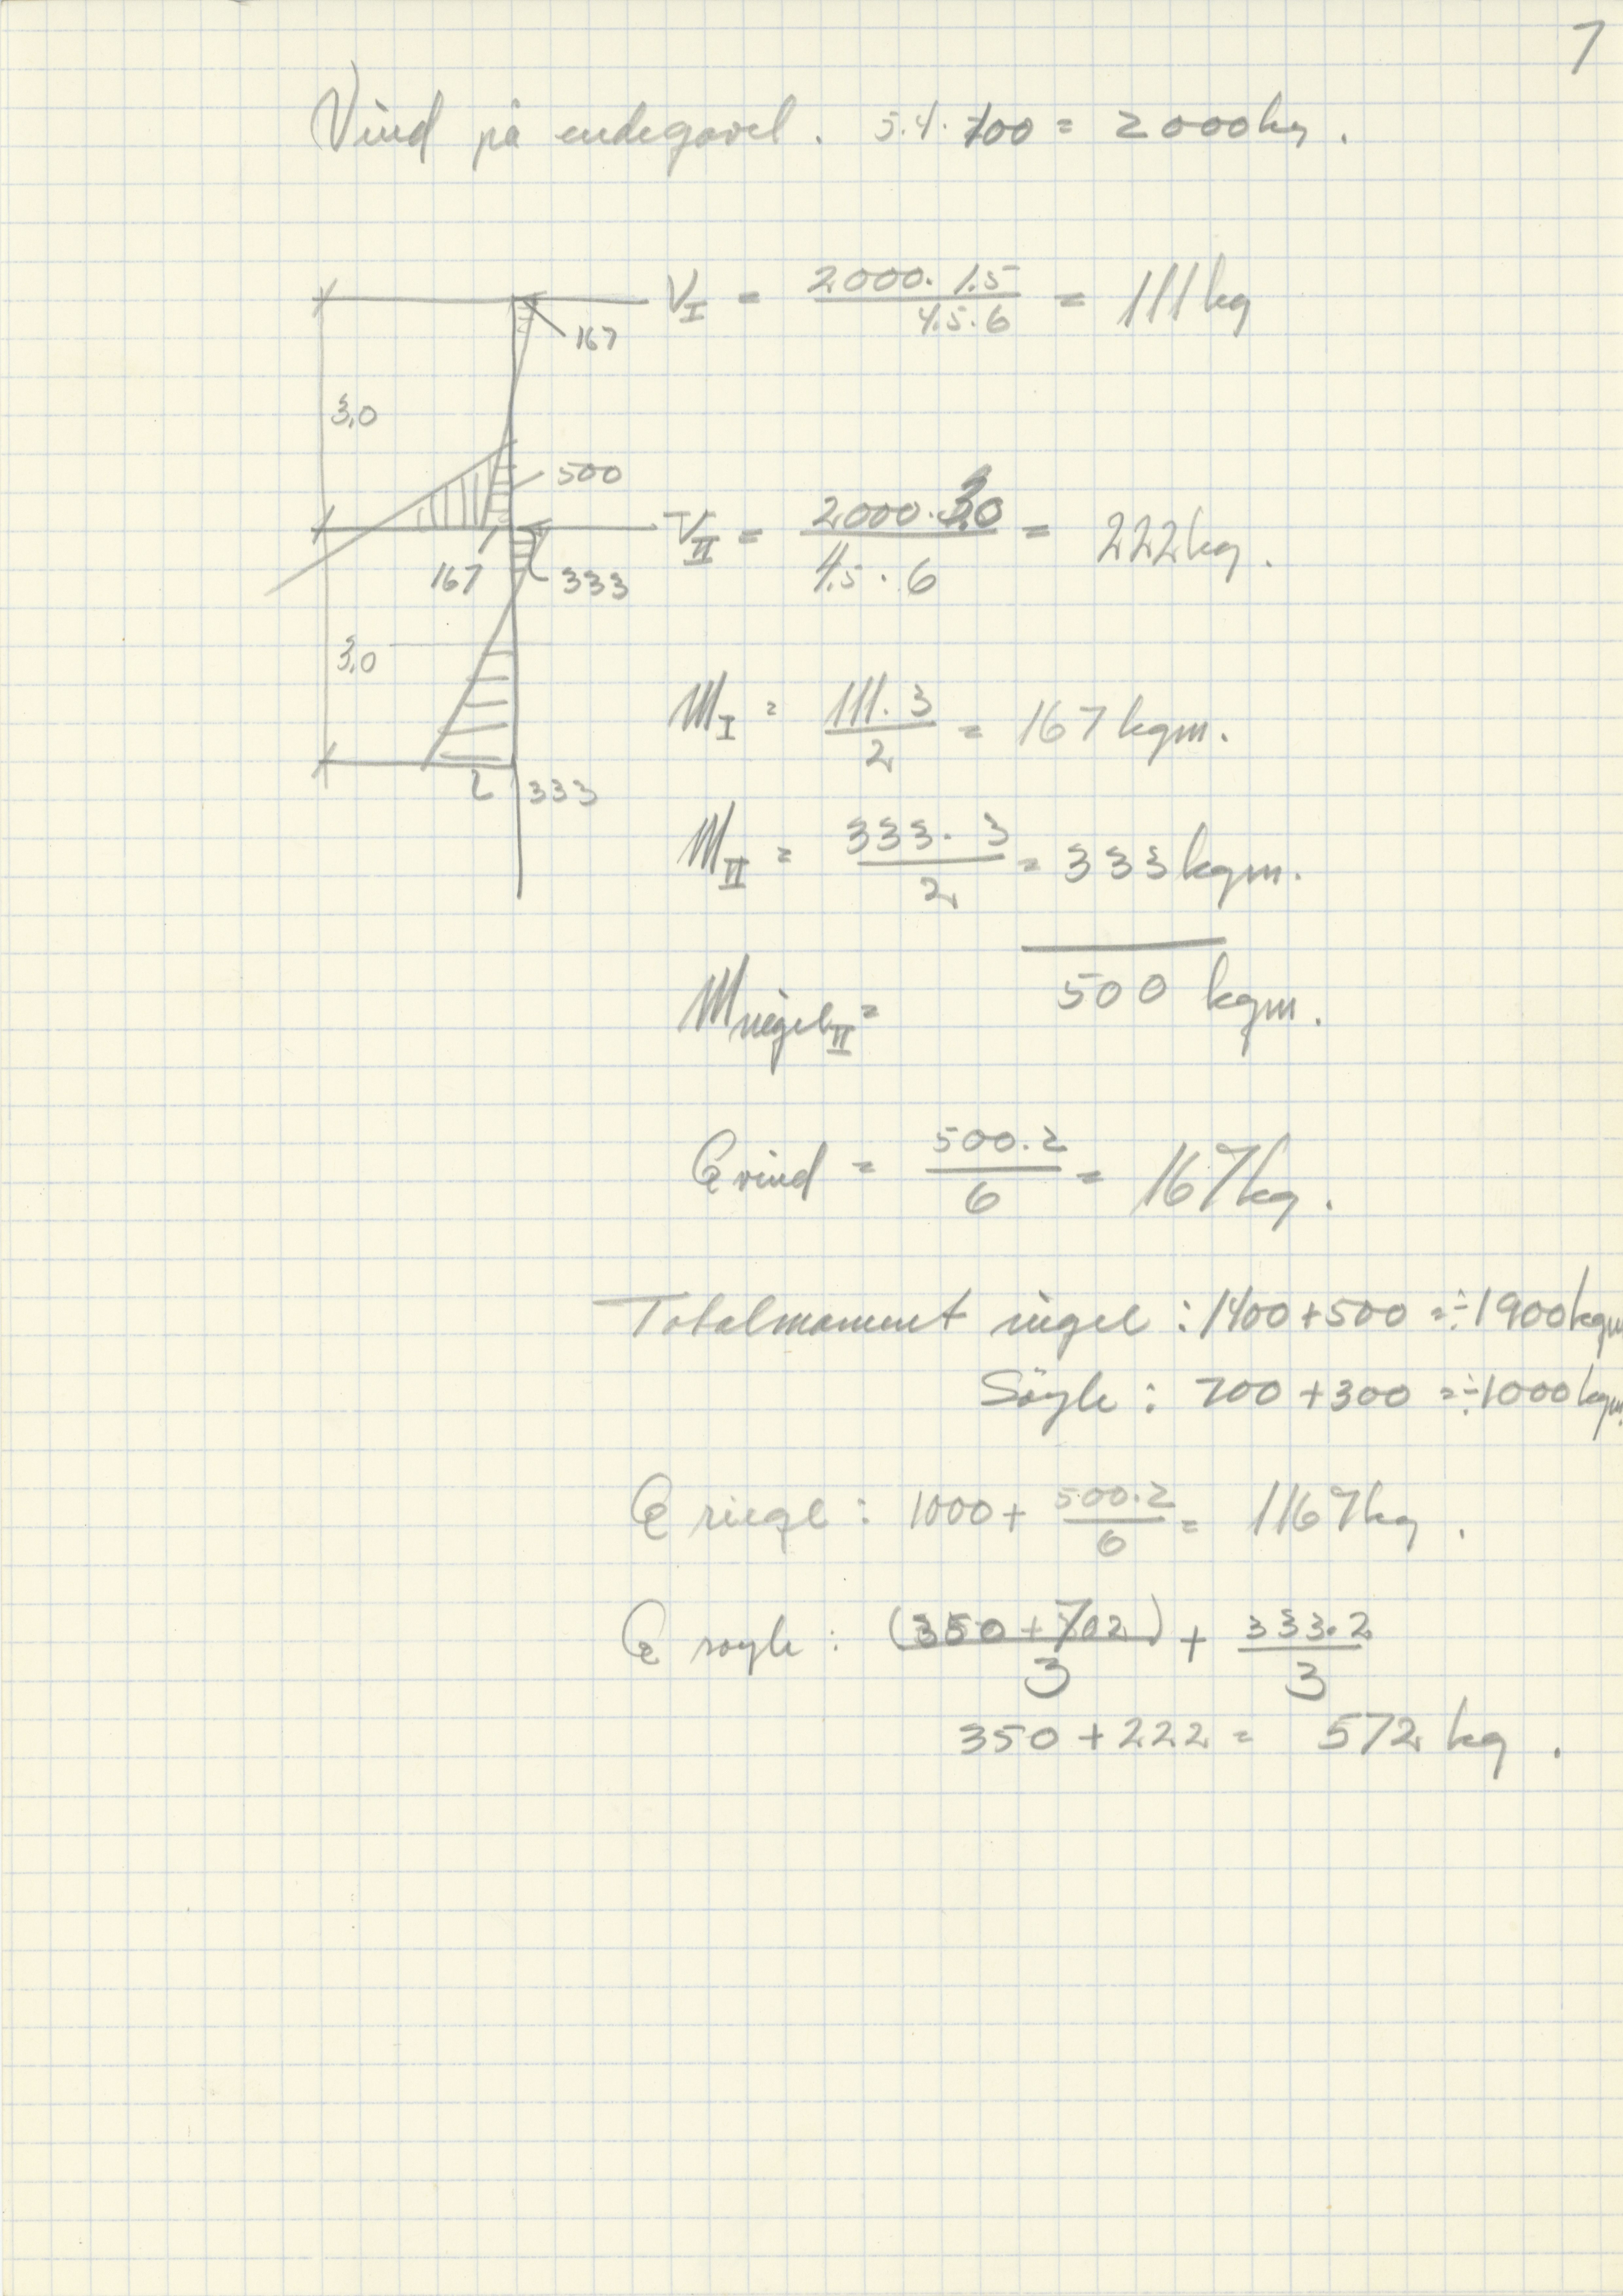 7
Vind på endegavel. 5.4.100 = 2000kg.
V_I = 2000.1.5 / 4.5.6 = 111kg
167
3,0
500
V_II = 2000.3.0 / 4.5.6 = 222kg.
167 333
3,0
M_I = 111.3 / 2 = 167kgm.
333
M_II = 333.3 / 2 = 333kgm.
M riegel II = 500 kgm.
Q vind = 500.2 / 6 = 167kg.
Totalmoment riegel : 1400+500 = ÷1900kgm
Söyle : 700+300 = ÷1000kgm.
Q riegl : 1000 + 500.2 / 6 = 1167kg.
Q söyle : (350+702) / 3 + 333.2 / 3
350+222 = 572 kg.